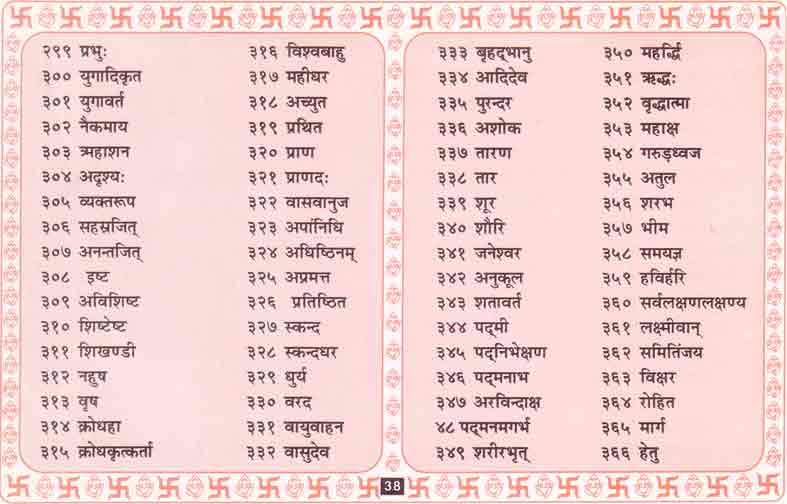 २९९ प्रभुः
३०० युगादिकृत
३०१ युगावर्त
३०२ नैकमाय
३०३ ऋमहाशन
३०४ अदृश्यः
३०५ व्यक्तरूप
३०६ सहस्रजित्
३०७ अनन्तजित्
३०८ इष्ट
३०९ अविशिष्ट
३१० शिष्टेष्ट
३११ शिखण्डी
३१२ नहुष
३१३ वृष
३१४ क्रोधहा
३१५ क्रोधकृत्कर्ता
३१६ विश्वबाहु
३१७ महीधर
३१८ अच्युत
३१९ प्रथित
३२० प्राण
३२१ प्राणदः
३२२ वासवानुज
३२३ अपांनिधि
३२४ अधिष्ठिनम्
३२५ अप्रमत्त
३२६ प्रतिष्ठित
३२७ स्कन्द
३२८ स्कन्दधर
३२९ धुर्य
३३० वरद
३३१ वायुवाहन
३३२ वासुदेव
३३३ बृहद्भानु
३३४ आदिदेव
३३५ पुरन्दर
३३६ अशोक
३३७ तारण
३३८ तार
३३९ शूर
३४० शौरि
३४१ जनेश्वर
३४२ अनुकूल
३४३ शतावर्त
३४४ पद्मी
३४५ पद्निभेक्षण
३४६ पद्मनाभ
३४७ अरविन्दाक्ष
४८ पद्मनमगर्भ
३४९ शरीरभृत्
३५० महर्द्धि
३५१ ऋद्धः
३५२ वृद्धात्मा
३५३ महाक्ष
३५४ गरुड़ध्वज
३५५ अतुल
३५६ शरभ
३५७ भीम
३५८ समयज्ञ
३५९ हविर्हरि
३६० सर्वलक्षणलक्षण्य
३६१ लक्ष्मीवान्
३६२ समितिंजय
३६३ विक्षर
३६४ रोहित
३६५ मार्ग
३६६ हेतु
38